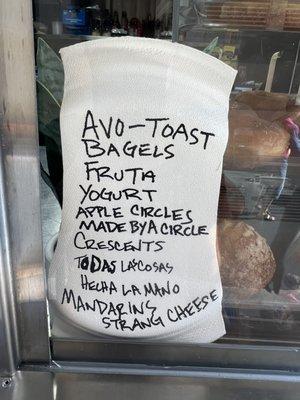 AVO-TOAST
BAGELS
FRUTA
YOGURT
APPLE CIRCLES
MADE BY A CIRCLE
CRESCENTS
TODAS LAS COSAS
HECHA LA MANO
MANDARINS
STRANG CHEESE